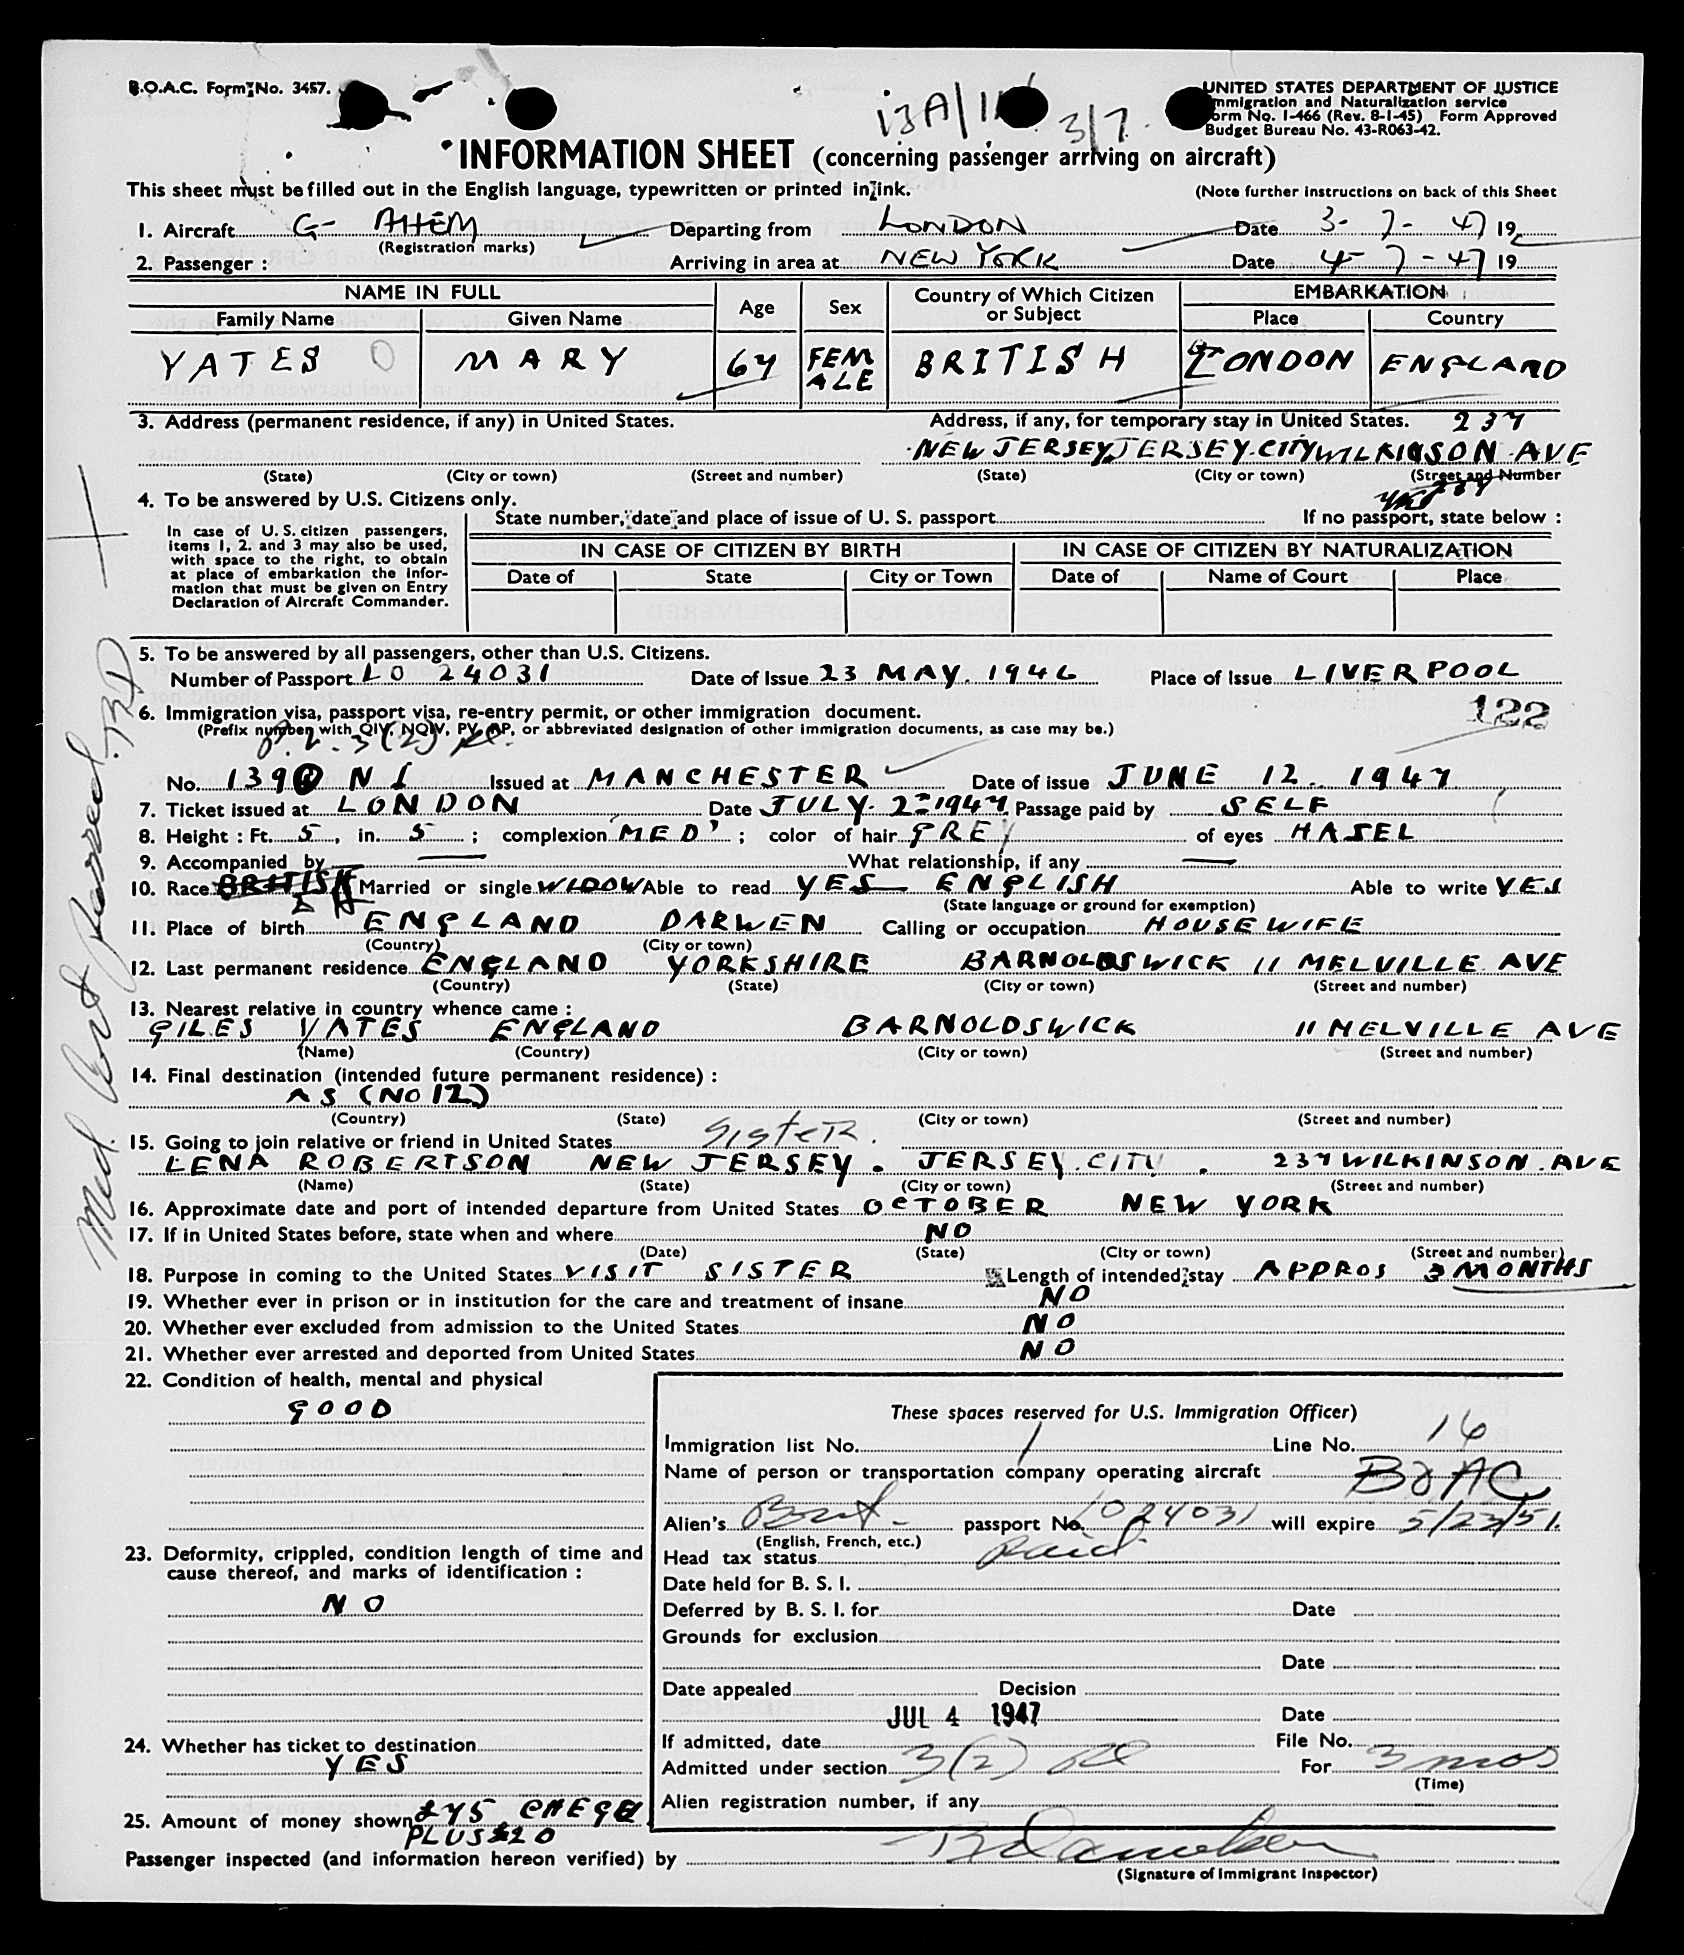 B.O.A.C. Form No. 3457.
UNITED STATES DEPARTMENT OF JUSTICE
Immigration and Naturalization service
Form No. I-466 (Rev. 8-1-45) Form Approved
Budget Bureau No. 43-R063-42.
3/7.
INFORMATION SHEET (concerning passenger arriving on aircraft)
This sheet must be filled out in the English language, typewritten or printed in ink. (Note further instructions on back of this Sheet
1. Aircraft G- AHEM Departing from LONDON Date 3-7-47 19
(Registration marks)
2. Passenger : Arriving in area at NEW YORK Date 4-7-47 19
NAME IN FULL Age Sex Country of Which Citizen or Subject EMBARKATION
Family Name Given Name Place Country
YATES MARY 64 FEMALE BRITISH LONDON ENGLAND
3. Address (permanent residence, if any) in United States. Address, if any, for temporary stay in United States. 237
NEW JERSEY, JERSEY.CITY WILKINSON AVE
(State) (City or town) (Street and number) (State) (City or town) (Street and Number
4. To be answered by U.S. Citizens only.
State number, date and place of issue of U. S. passport If no passport, state below :
In case of U. S. citizen passengers,
items 1, 2. and 3 may also be used,
with space to the right, to obtain
at place of embarkation the infor-
mation that must be given on Entry
Declaration of Aircraft Commander.
IN CASE OF CITIZEN BY BIRTH IN CASE OF CITIZEN BY NATURALIZATION
Date of State City or Town Date of Name of Court Place
5. To be answered by all passengers, other than U.S. Citizens.
Number of Passport LO 24031 Date of Issue 23 MAY. 1946 Place of Issue LIVERPOOL
6. Immigration visa, passport visa, re-entry permit, or other immigration document. 122
(Prefix number with QIV, NQIV, PV, AP, or abbreviated designation of other immigration documents, as case may be.)
P.V. 3(2)
No. 1398 NI Issued at MANCHESTER Date of issue JUNE 12. 1947
7. Ticket issued at LONDON Date JULY. 2 1947. Passage paid by SELF
8. Height : Ft. 5, in. 5 ; complexion MED' ; color of hair GREY of eyes HASEL
9. Accompanied by — What relationship, if any —
10. Race BRITISH Married or single WIDOW Able to read YES — ENGLISH Able to write YES
(State language or ground for exemption)
11. Place of birth ENGLAND DARWEN Calling or occupation HOUSEWIFE
(Country) (City or town)
12. Last permanent residence ENGLAND YORKSHIRE BARNOLDSWICK 11 MELVILLE AVE
(Country) (State) (City or town) (Street and number)
13. Nearest relative in country whence came :
GILES YATES ENGLAND BARNOLDSWICK 11 MELVILLE AVE
(Name) (Country) (City or town) (Street and number)
14. Final destination (intended future permanent residence) :
AS (NO 12)
(Country) (State) (City or town) (Street and number)
15. Going to join relative or friend in United States SISTER.
LENA ROBERTSON NEW JERSEY. JERSEY.CITY. 237 WILKINSON.AVE
(Name) (State) (City or town) (Street and number)
16. Approximate date and port of intended departure from United States OCTOBER NEW YORK
17. If in United States before, state when and where NO
(Date) (State) (City or town) (Street and number)
18. Purpose in coming to the United States VISIT SISTER Length of intended stay APPROS 3 MONTHS
19. Whether ever in prison or in institution for the care and treatment of insane NO
20. Whether ever excluded from admission to the United States NO
21. Whether ever arrested and deported from United States NO
22. Condition of health, mental and physical
GOOD
23. Deformity, crippled, condition length of time and
cause thereof, and marks of identification :
NO
24. Whether has ticket to destination
YES
25. Amount of money shown £75 CHEQE
PLUS £20
These spaces reserved for U.S. Immigration Officer)
Immigration list No. 1 Line No. 16
Name of person or transportation company operating aircraft BOAC
Alien's Brit- passport No. LO 24031 will expire 5/23/51.
(English, French, etc.)
Head tax status Paid
Date held for B. S. I.
Deferred by B. S. I. for Date
Grounds for exclusion
Date
Date appealed Decision
JUL 4 1947 Date
If admitted, date File No.
Admitted under section 3(2) For 3 mos
(Time)
Alien registration number, if any
Passenger inspected (and information hereon verified) by
(Signature of Immigrant Inspector)
Med. Cert Passed.